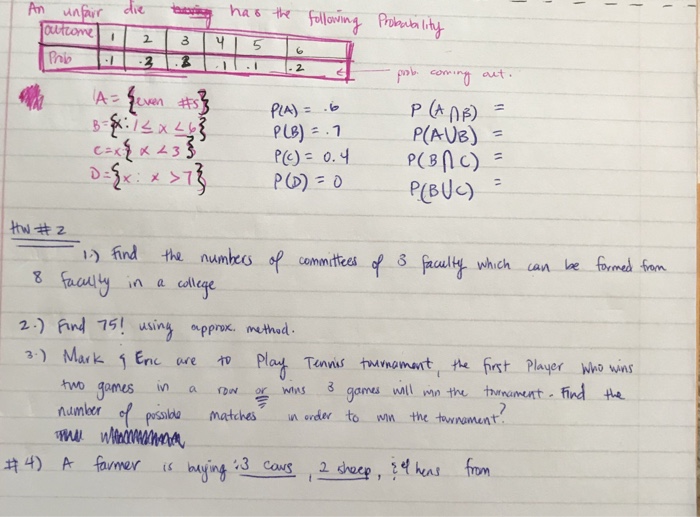 An unfair die has the following Probability
outcome 1 2 3 4 5 6
Prob .1 .3 .2 .1 .1 .2
prob. coming out.
A = {even #s} P(A) = .6 P(A∩B) =
B = {x: 1 ≤ x < 6} P(B) = .7 P(A∪B) =
C = x{ x < 3} P(C) = 0.4 P(B∩C) =
D = {x: x > 7} P(D) = 0 P(B∪C) =
HW # 2
1.) Find the numbers of committees of 3 faculty which can be formed from
8 faculty in a college
2.) Find 75! using approx. method.
3.) Mark & Eric are to Play Tennis turnament, the first Player who wins
two games in a row or wins 3 games will win the turnament. Find the
number of possible matches in order to win the turnament?
#4) A farmer is buying : 3 cows, 2 sheep, & 4 hens from